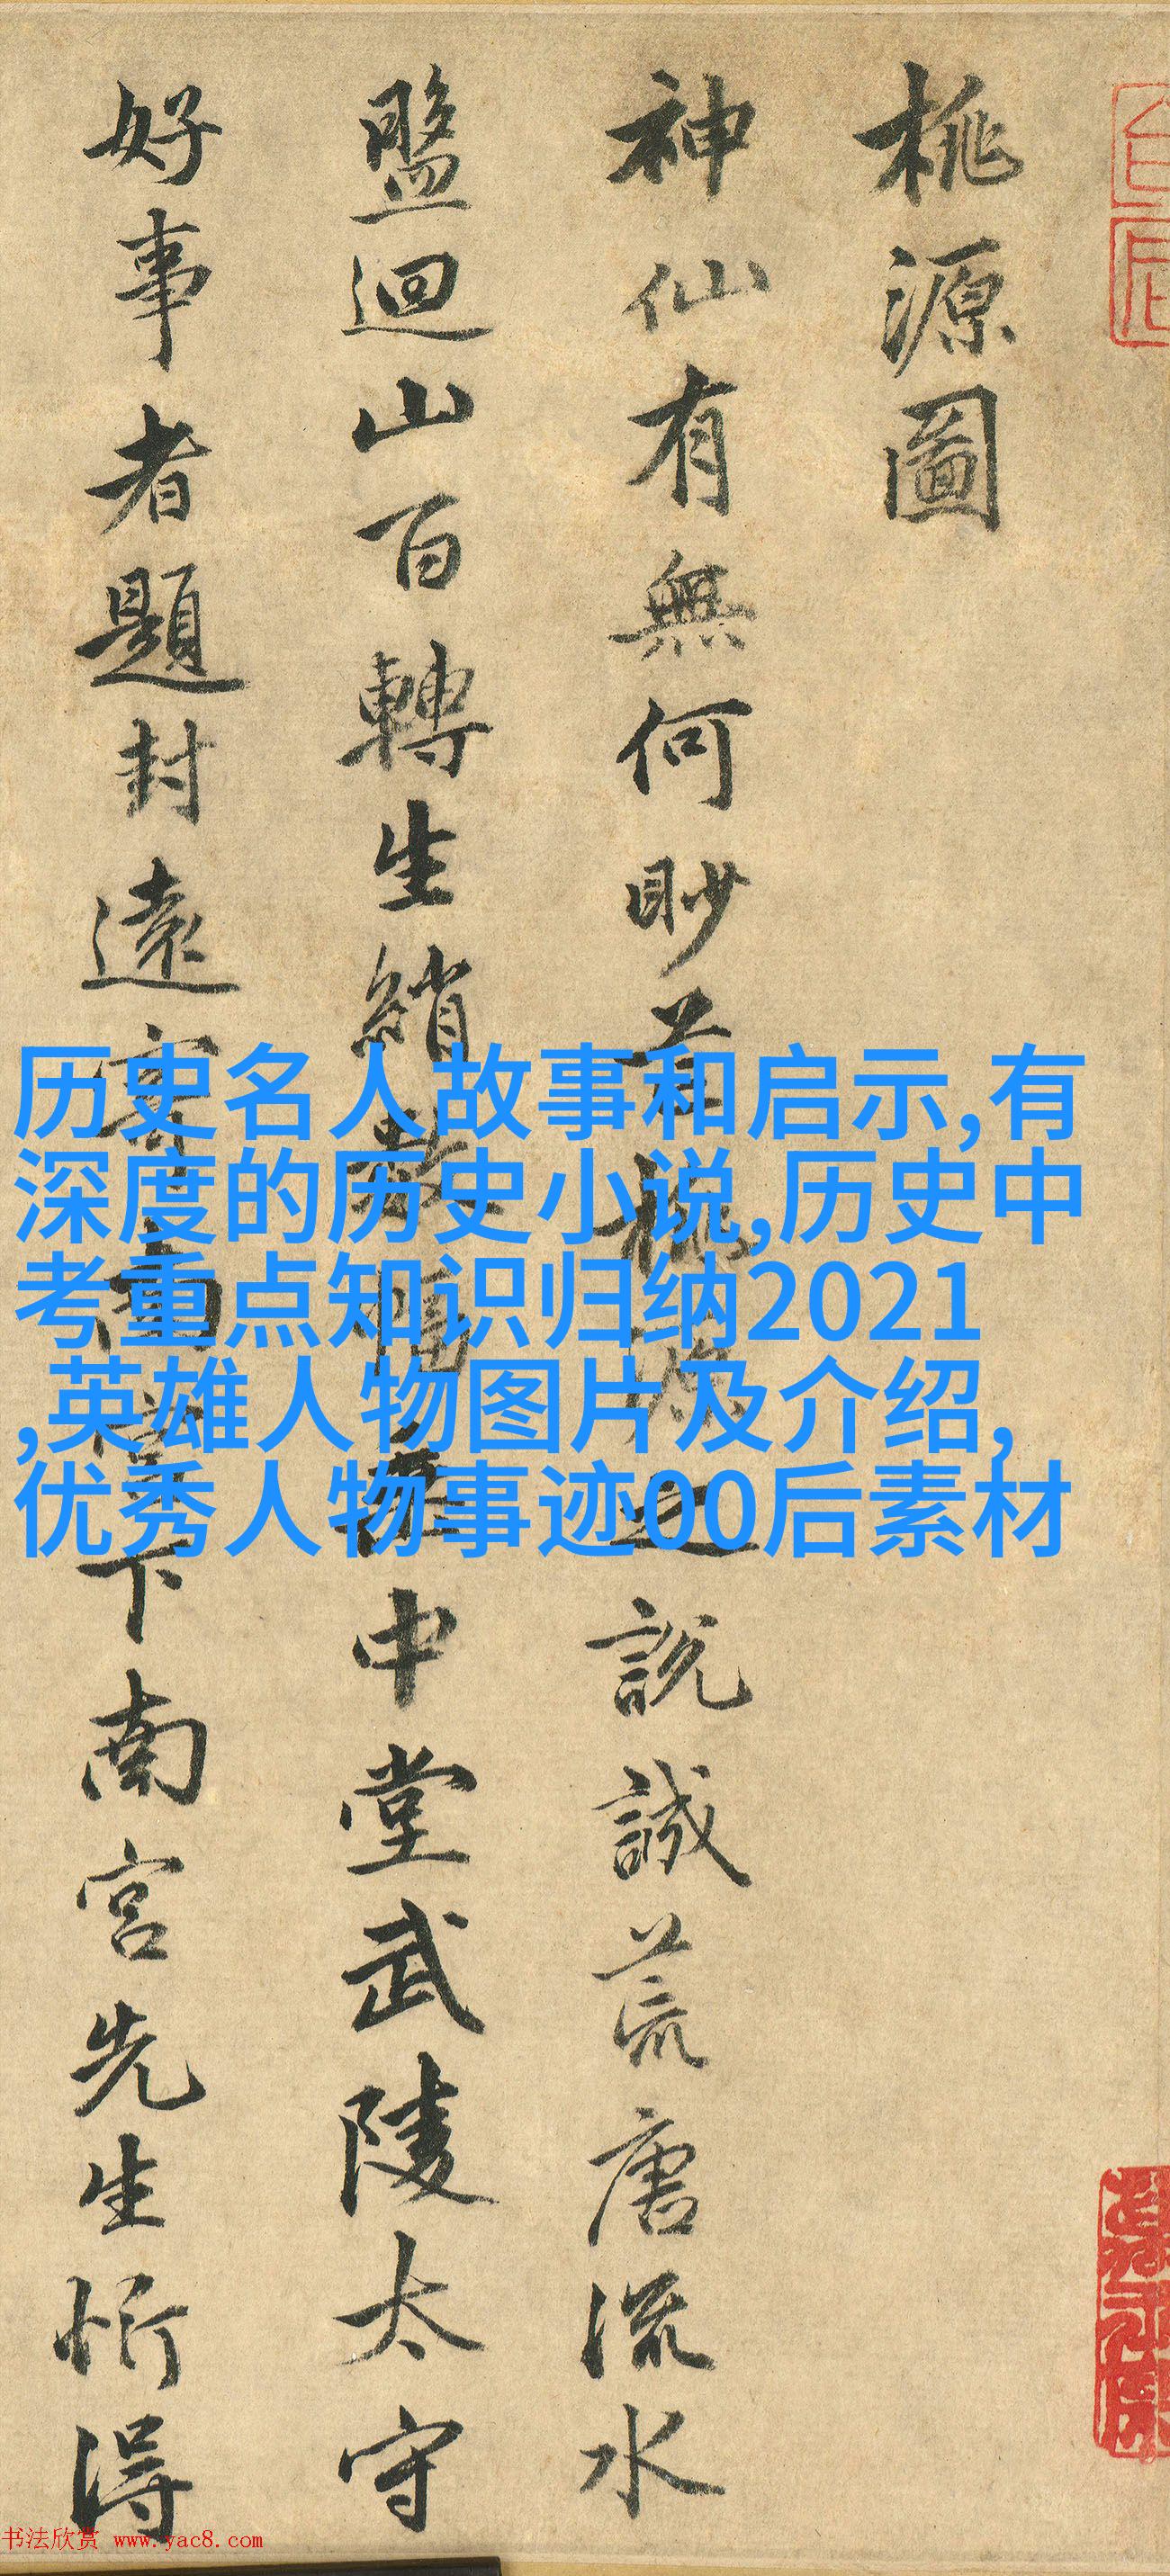 桃源圖
神仙有無何眇芒桃源之說誠荒唐流水
盤迴山百轉生綃數幅垂中堂武陵太守
好事者題封遠寄南宮下南宮先生忻得
历史名人故事和启示,有
深度的历史小说,历史中
考重点知识归纳2021
,英雄人物图片及介绍,
优秀人物事迹00后素材
书法欣赏 www.yac8.com